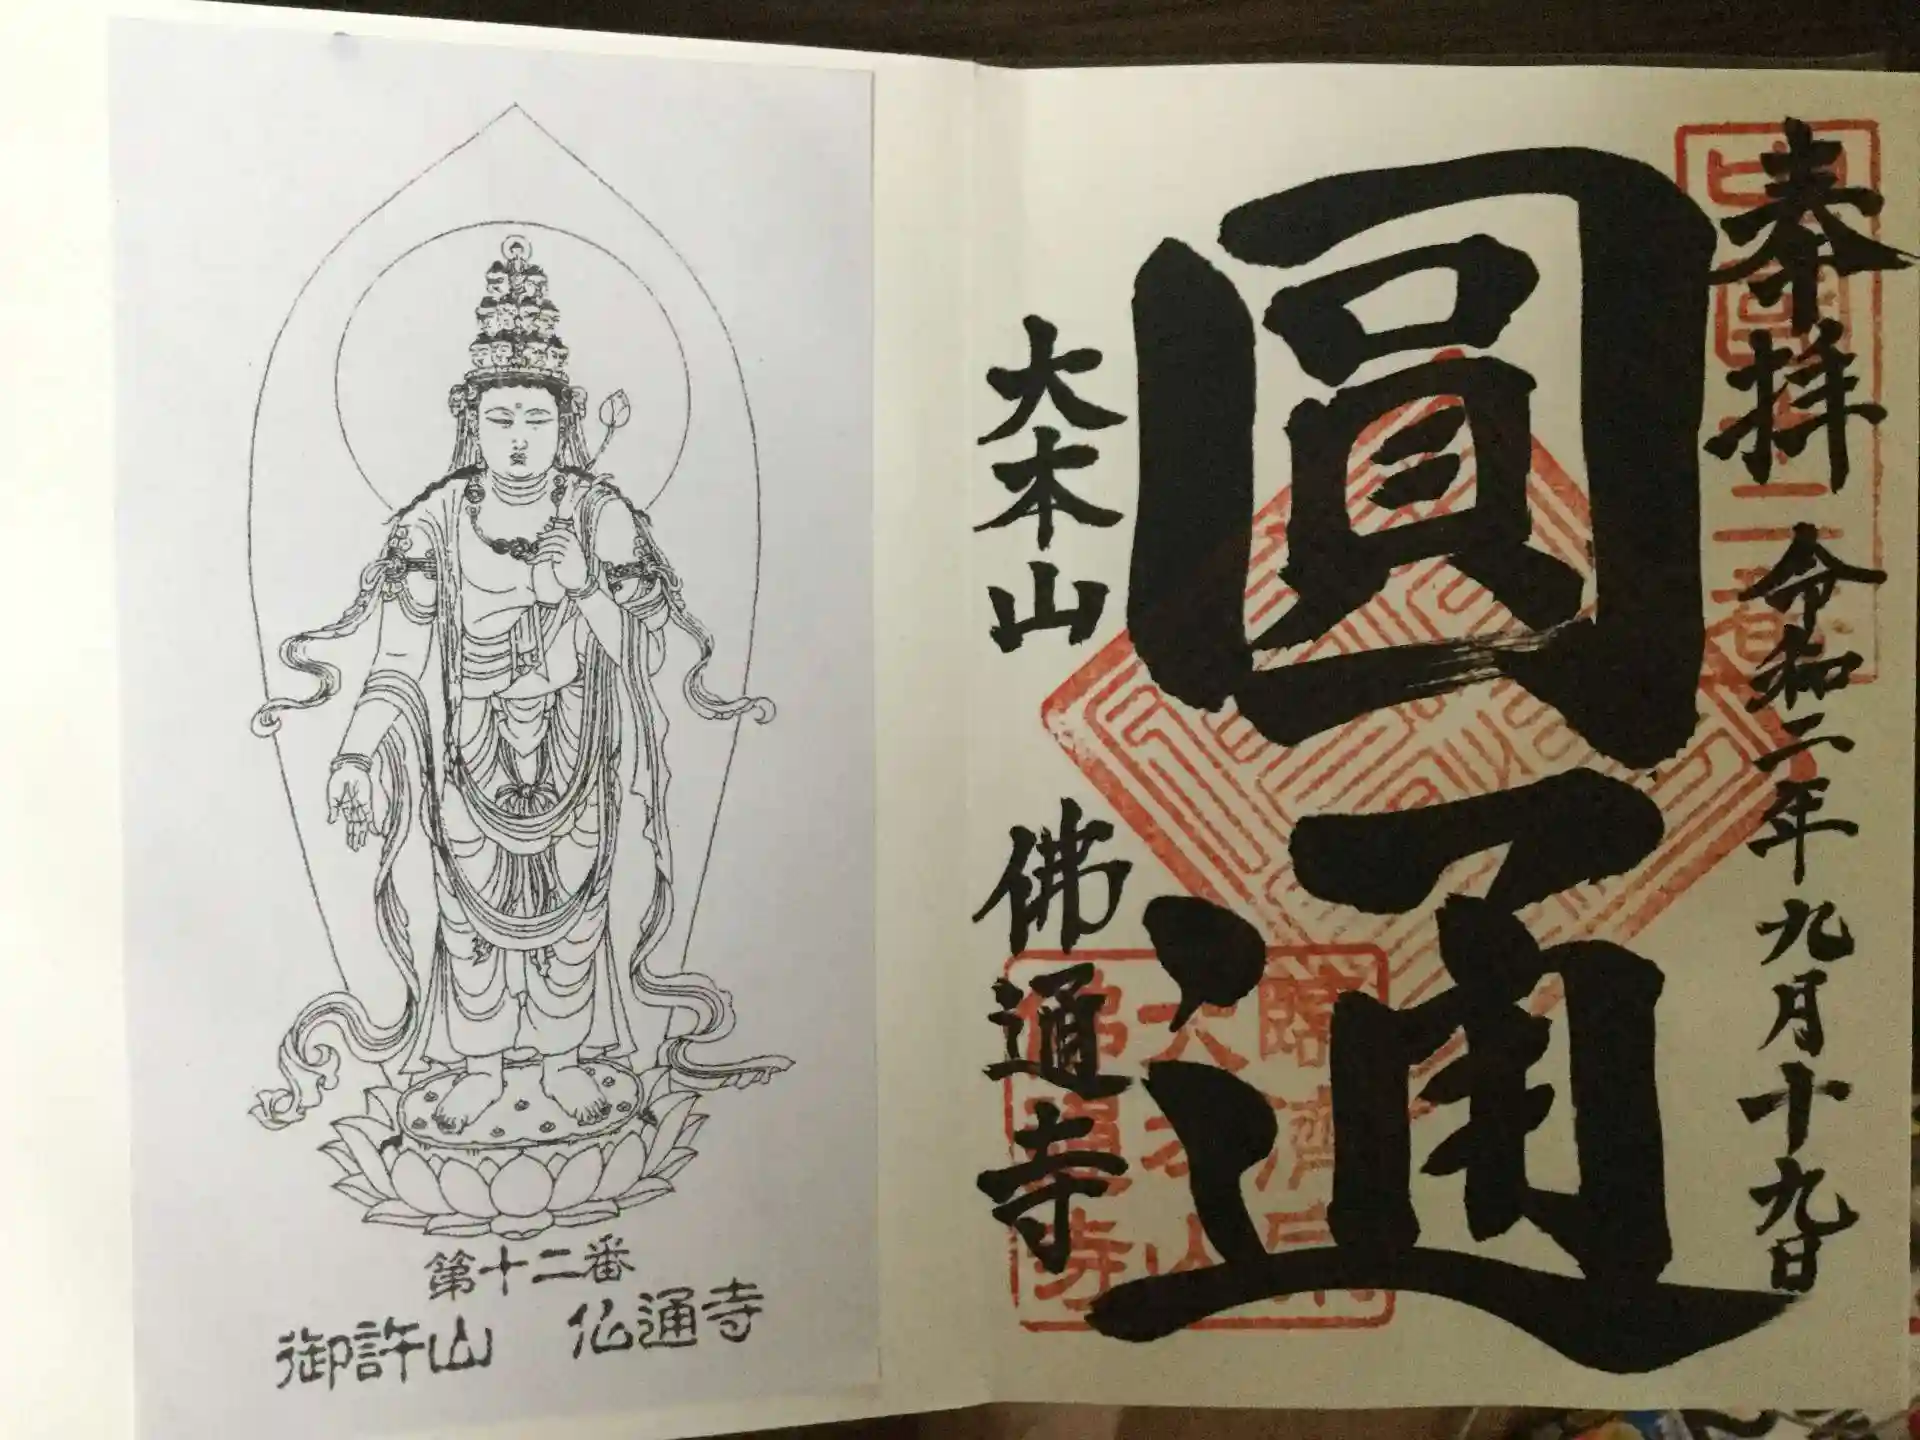 奉拝 令和二年九月十九日
圓通
大本山 佛通寺
中国
十二番
臨済宗
大本山
佛通寺
第十二番
御許山 仏通寺